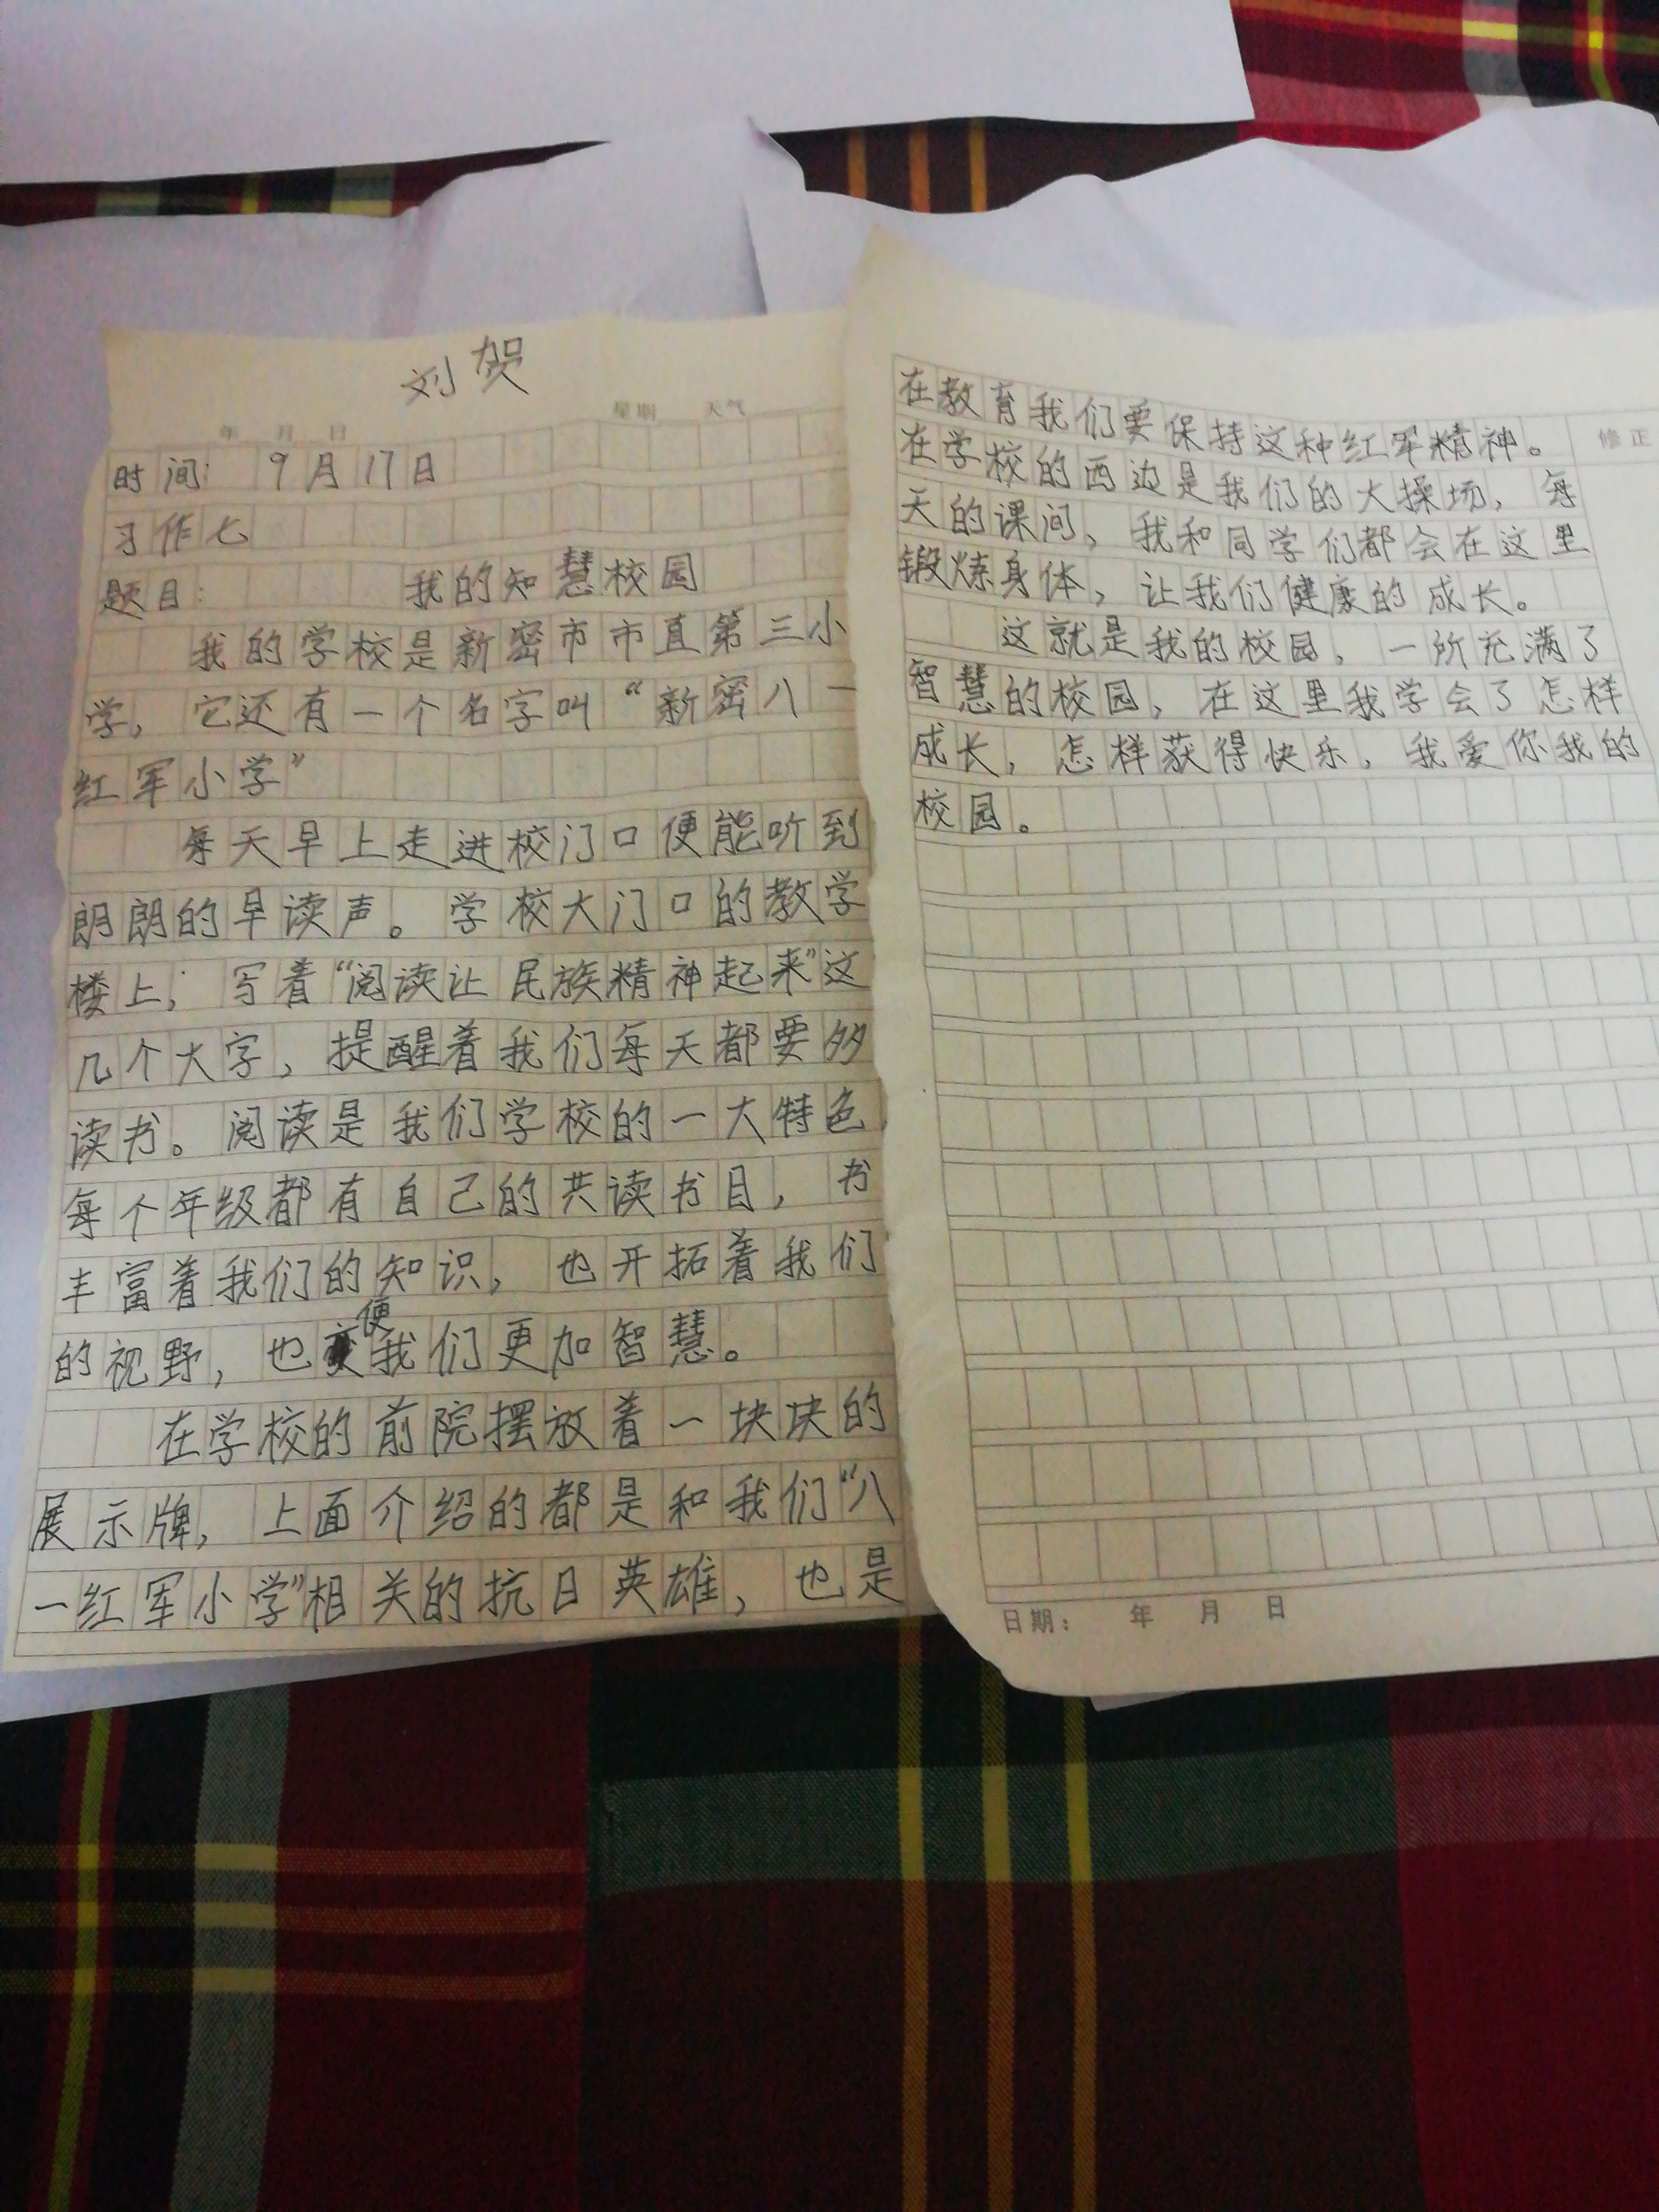 刘贺
年 月 日 星期 天气
时间: 9月17日
习作七
题目: 我的知慧校园
我的学校是新密市市直第三小
学,它还有一个名字叫“新密八一
红军小学”
每天早上走进校门口便能听到
朗朗的早读声。学校大门口的教学
楼上,写着“阅读让民族精神起来”这
几个大字,提醒着我们每天都要多
读书。阅读是我们学校的一大特色
每个年级都有自己的共读书目,书
丰富着我们的知识,也开拓着我们
的视野,也便我们更加智慧。
在学校的前院摆放着一块块的
展示牌,上面介绍的都是和我们“八
一红军小学”相关的抗日英雄,也是
在教育我们要保持这种红军精神。
修正
在学校的西边是我们的大操场,每
天的课间,我和同学们都会在这里
锻炼身体,让我们健康的成长。
这就是我的校园,一所充满了
智慧的校园,在这里我学会了怎样
成长,怎样获得快乐,我爱你我的
校园。
日期: 年 月 日